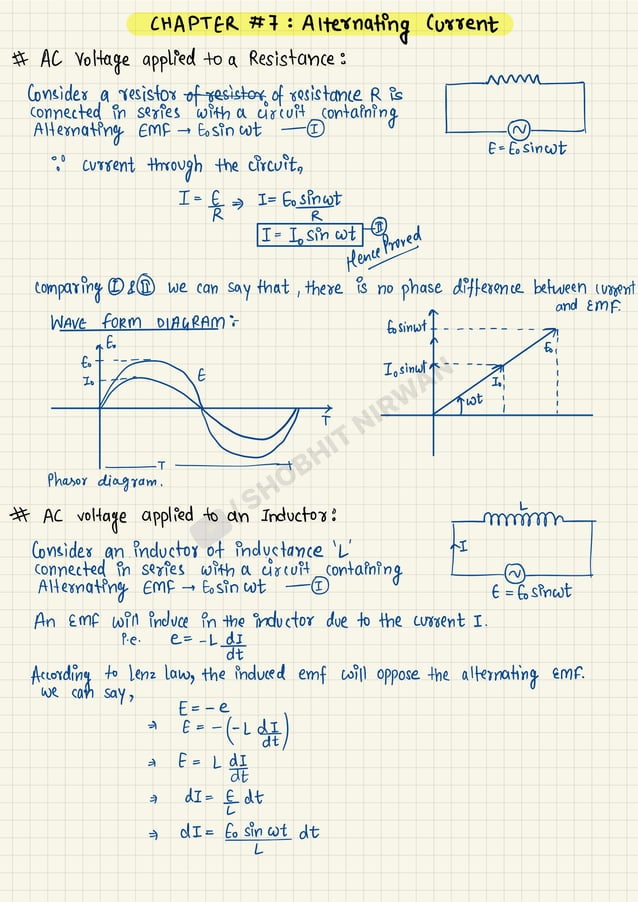 CHAPTER #7: Alternating Current
# AC Voltage applied to a Resistance:
Consider a resistor of resistor, of resistance R is
connected in series with a circuit containing
Alternating EMF → E₀sin ωt —Ⓘ
E = E₀sinωt
∵ current through the circuit,
I = E/R ⇒ I = E₀sinωt/R
I = I₀ sin ωt —Ⓘⓘ
Hence Proved
Comparing Ⓘ & Ⓘⓘ we can say that, there is no phase difference between current
and EMF.
WAVE FORM DIAGRAM:-
E₀
E₀
I₀
E
T
T
E₀sinωt
I₀sinωt
E₀
I₀
ωt
Phasor diagram.
/ SHOBHIT NIRWAN
# AC voltage applied to an Inductor:
Consider an inductor of inductance 'L'
connected in series with a circuit containing
Alternating EMF → E₀sin ωt —Ⓘ
L
I
E = E₀sinωt
An EMF will induce in the inductor due to the current I.
i.e. e = -L dI/dt
According to lenz law, the induced emf will oppose the alternating EMF.
we can say,
E = - e
⇒ E = -(-L dI/dt)
⇒ E = L dI/dt
⇒ dI = E/L dt
⇒ dI = E₀ sin ωt/L dt